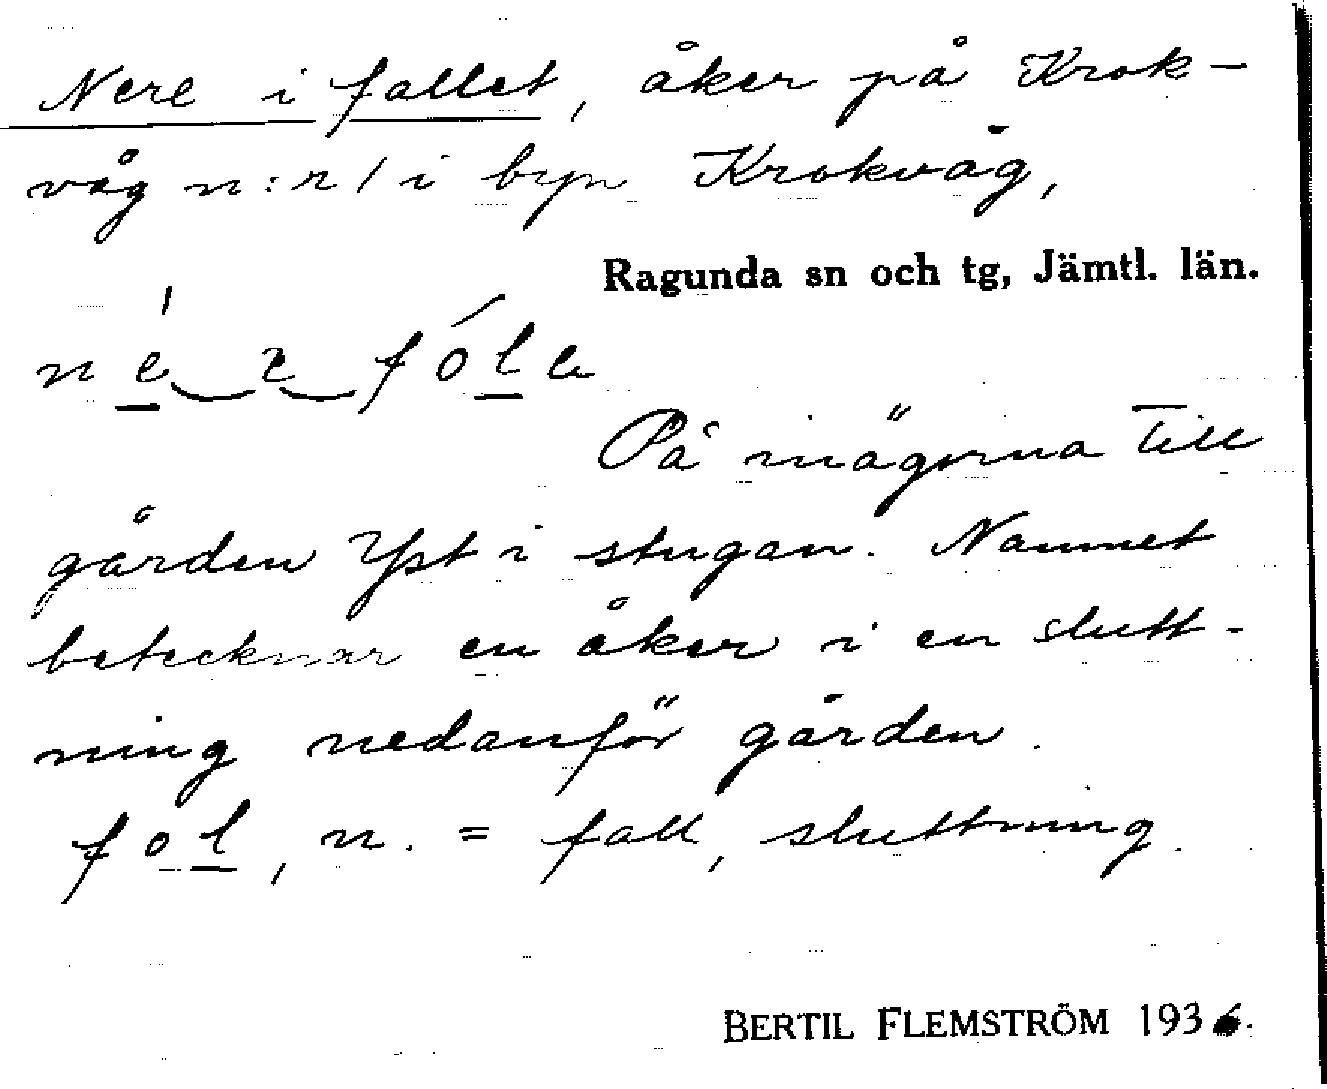 Nere i fallet, åker på Krok-
våg n:r 1 i byn Krokvåg,
Ragunda sn och tg, Jämtl. län.
På inägorna till
gården Yst i stugan. Namnet
betecknar en åker i en slutt-
ning nedanför gården.
fol, n. = fall, sluttning.
BERTIL FLEMSTRÖM 1936.